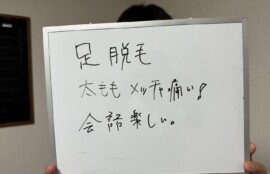 足 脱毛
太もも メッチャ痛い!
会話 楽しい。